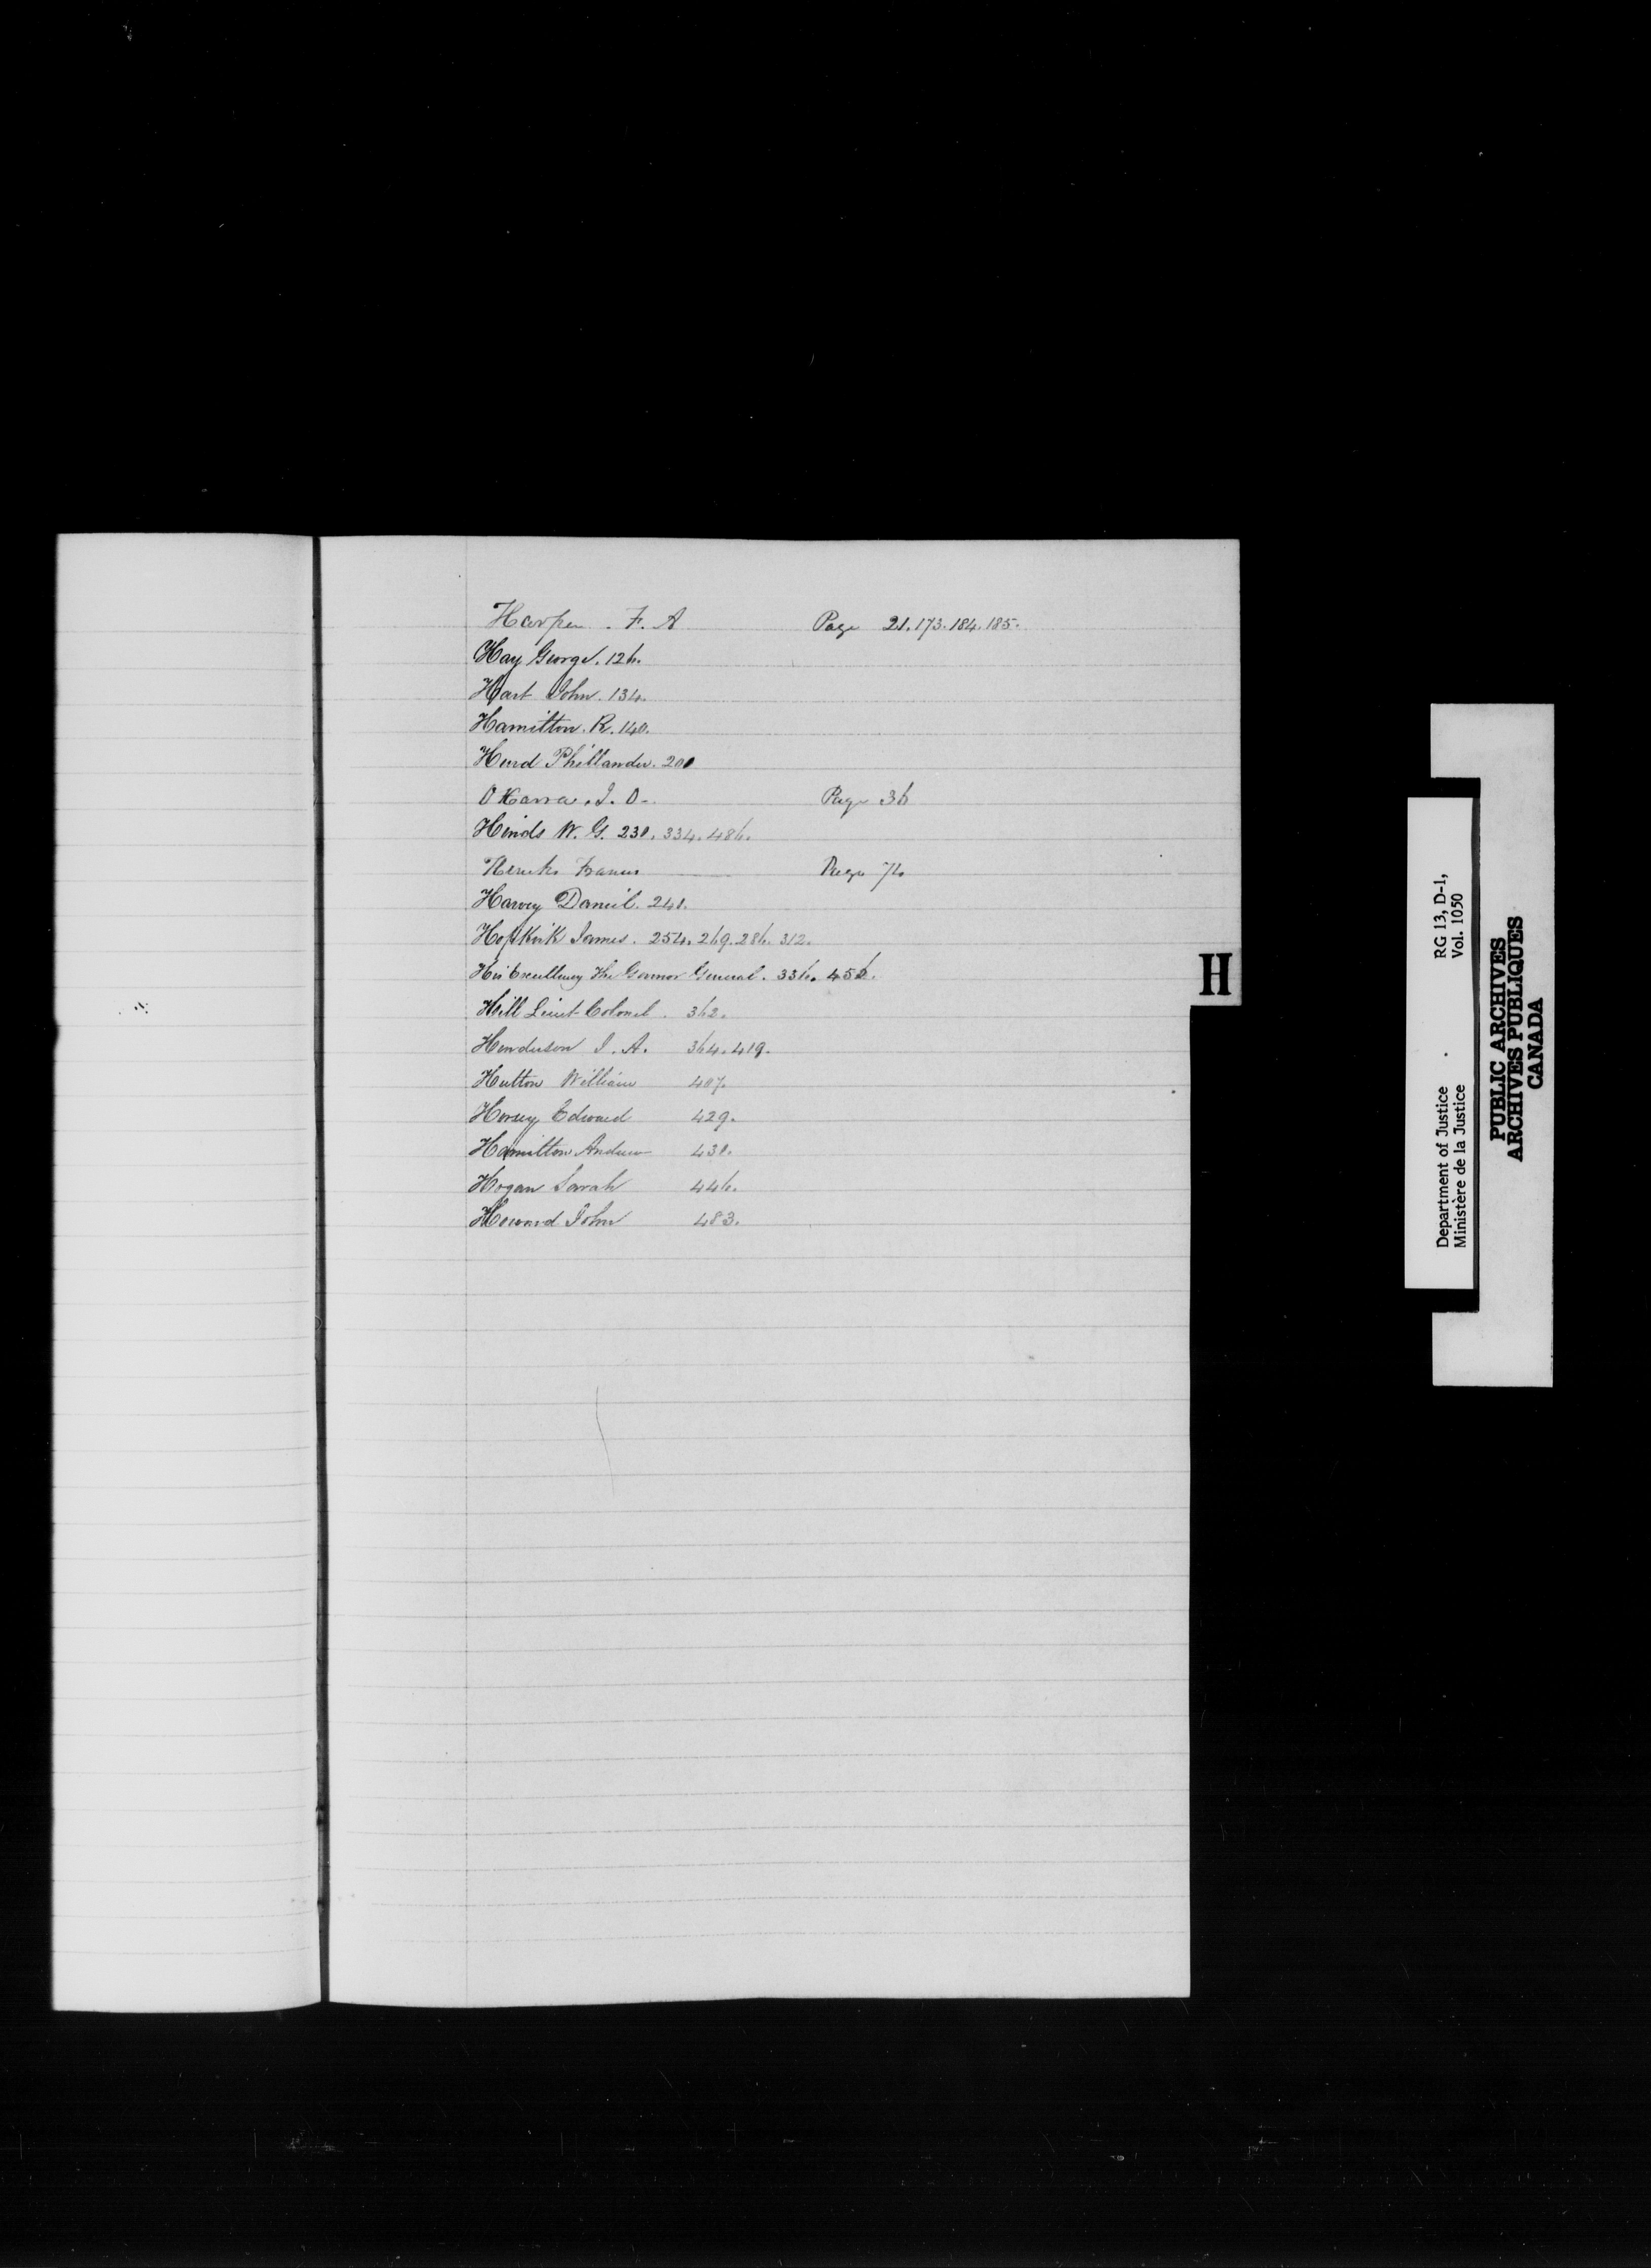 Harper. F. A Page 21.173.184.185.
Hay George. 126.
Hart John. 134.
Hamilton. R. 140.
Hurd Phillander. 200
O Harra. J. O. Page 36
Hinds W. G. 230. 334. 486.
Hincks Francis Page 74
Harvey Daniel. 240.
Hopkirk James. 254. 269. 286. 312.
His Excellency The Govnor General. 336. 456.
Hill Lieut-Colonel. 362.
Henderson J. A. 364. 419.
Hutton William 407.
Horsey Edward 429.
Hamilton Andrew 430.
Hogan Sarah 446.
Howard John 483.
H
Department of Justice RG 13, D-1,
Ministère de la Justice Vol. 1050
PUBLIC ARCHIVES
ARCHIVES PUBLIQUES
CANADA